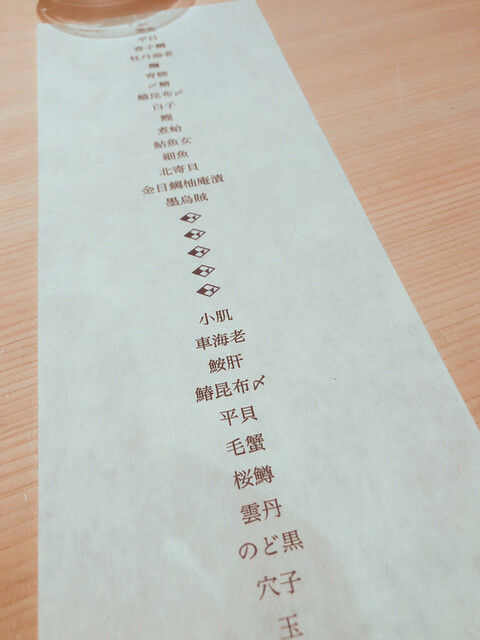 平目
春子鯛
牡丹海老
鰤
青柳
〆鯖
鰆昆布〆
白子
鰹
煮蛤
鮎魚女
細魚
北寄貝
金目鯛柚庵漬
墨烏賊
小肌
車海老
鮟肝
鰆昆布〆
平貝
毛蟹
桜鱒
雲丹
のど黒
穴子
玉